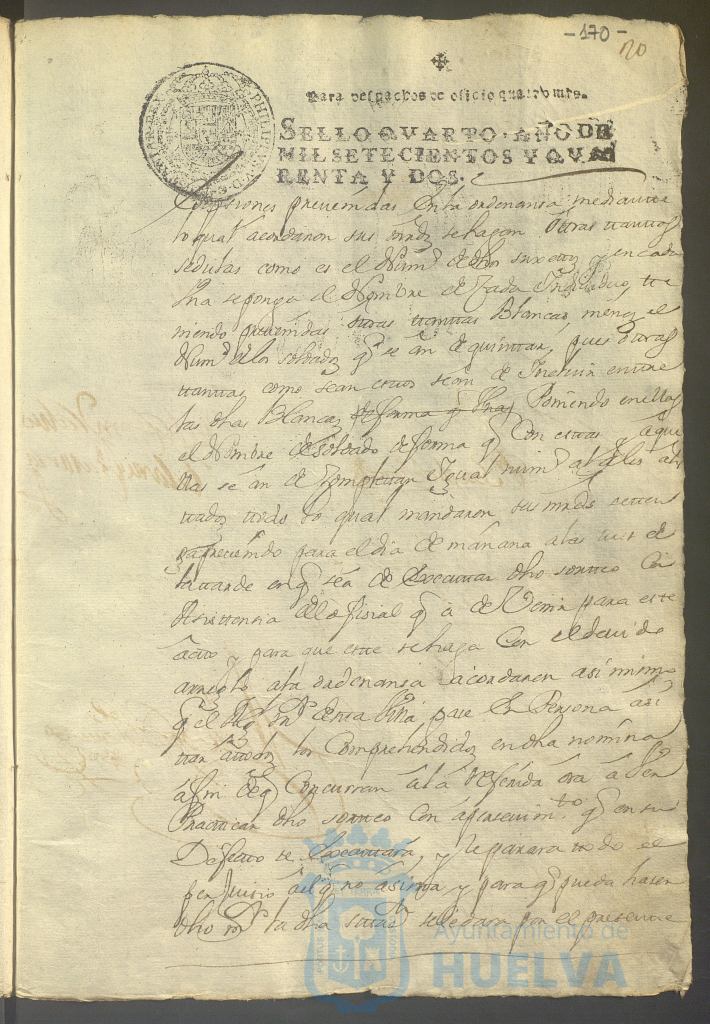 -170-
20
Para despachos de oficio quatro mrs.
SELLO QVARTO, AÑO DE
MIL SETECIENTOS Y QVA
RENTA Y DOS.
prevenidas en la ordenansa mediante
lo qual acordaron sus mrdz se hagan otras tanttas
sedulas como es el Num.º de dhos suxettoz y en cada
Una se ponga el Nombre de Cada Individuo, the
niendo prevenidas otras tanttas Blancas menoz el
Num.º de los soldadoz q se an de quinttar, pues ottras
tanttas como sean estos sean de Incluir enttre
las dhas Blancaz Poniendo en ellas
el Nombre de soldado de forma q Con esttas y aque
llas se an de Complettar Igual num.º al de los alis
ttadoz ttodo lo qual mandaron sus mrds
para el dia de mañana a las tres de
la ttarde en q se a de Executtar dho sortteo Con
Asisttencia del ofisial q a de Venir para estte
actto y para que estte se haga Con el devido
arreglo a la ordenansa acordaron asi mismo
q el de estta Villa pase en Persona a si
ttar a ttodoz los Comprehendidoz en dha nomina
a fin de q Concurran a la Referida ora a Ver
Practticar dho sortteo Con apersevim.to q en su
Defectto se Executtara, y le parara ttodo el
perjuisio al q no asistta y para q pueda haser
dho la dha se le dara por el presentte
Ayuntamiento de
HUELVA